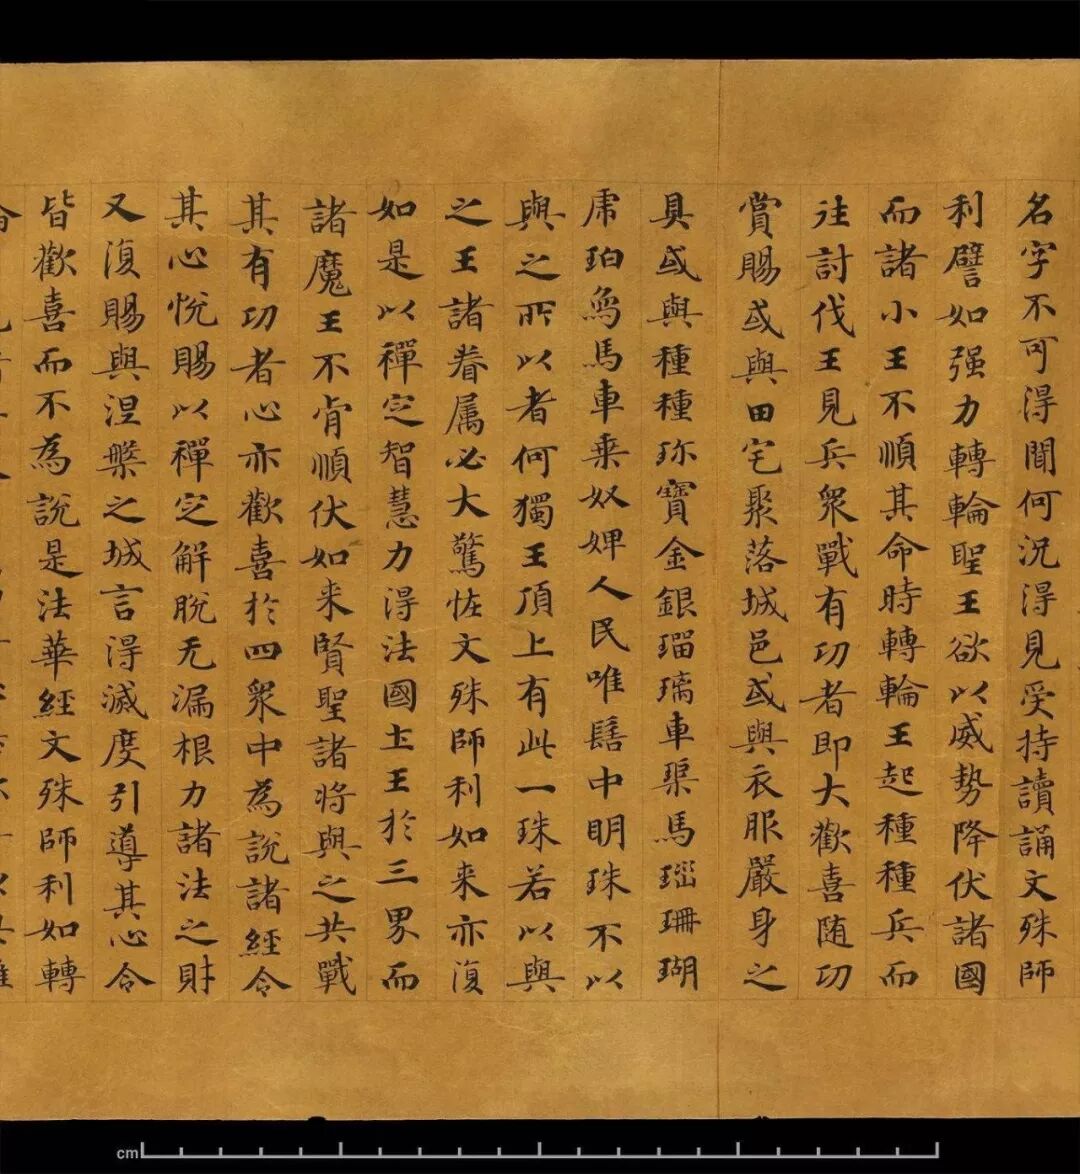 名字不可得聞何況得見受持讀誦文殊師
利譬如强力轉輪聖王欲以威勢降伏諸國
而諸小王不順其命時轉輪王起種種兵而
往討伐王見兵衆戰有功者即大歡喜随功
賞賜或與田宅聚落城邑或與衣服嚴身之
具或與種種珎寶金銀瑠璃車璖馬瑙珊瑚
虎珀鳥馬車乗奴婢人民唯髻中明珠不以
與之所以者何獨王頂上有此一珠若以與
之王諸眷属必大驚恠文殊師利如来亦復
如是以禪定智慧力得法國土王於三界而
諸魔王不肯順伏如来賢聖諸将與之共戰
其有功者心亦歡喜於四衆中為說諸經令
其心悅賜以禪定解脫无漏根力諸法之財
又復賜與涅槃之城言得滅度引導其心令
皆歡喜而不為說是法華經文殊師利如轉
cm